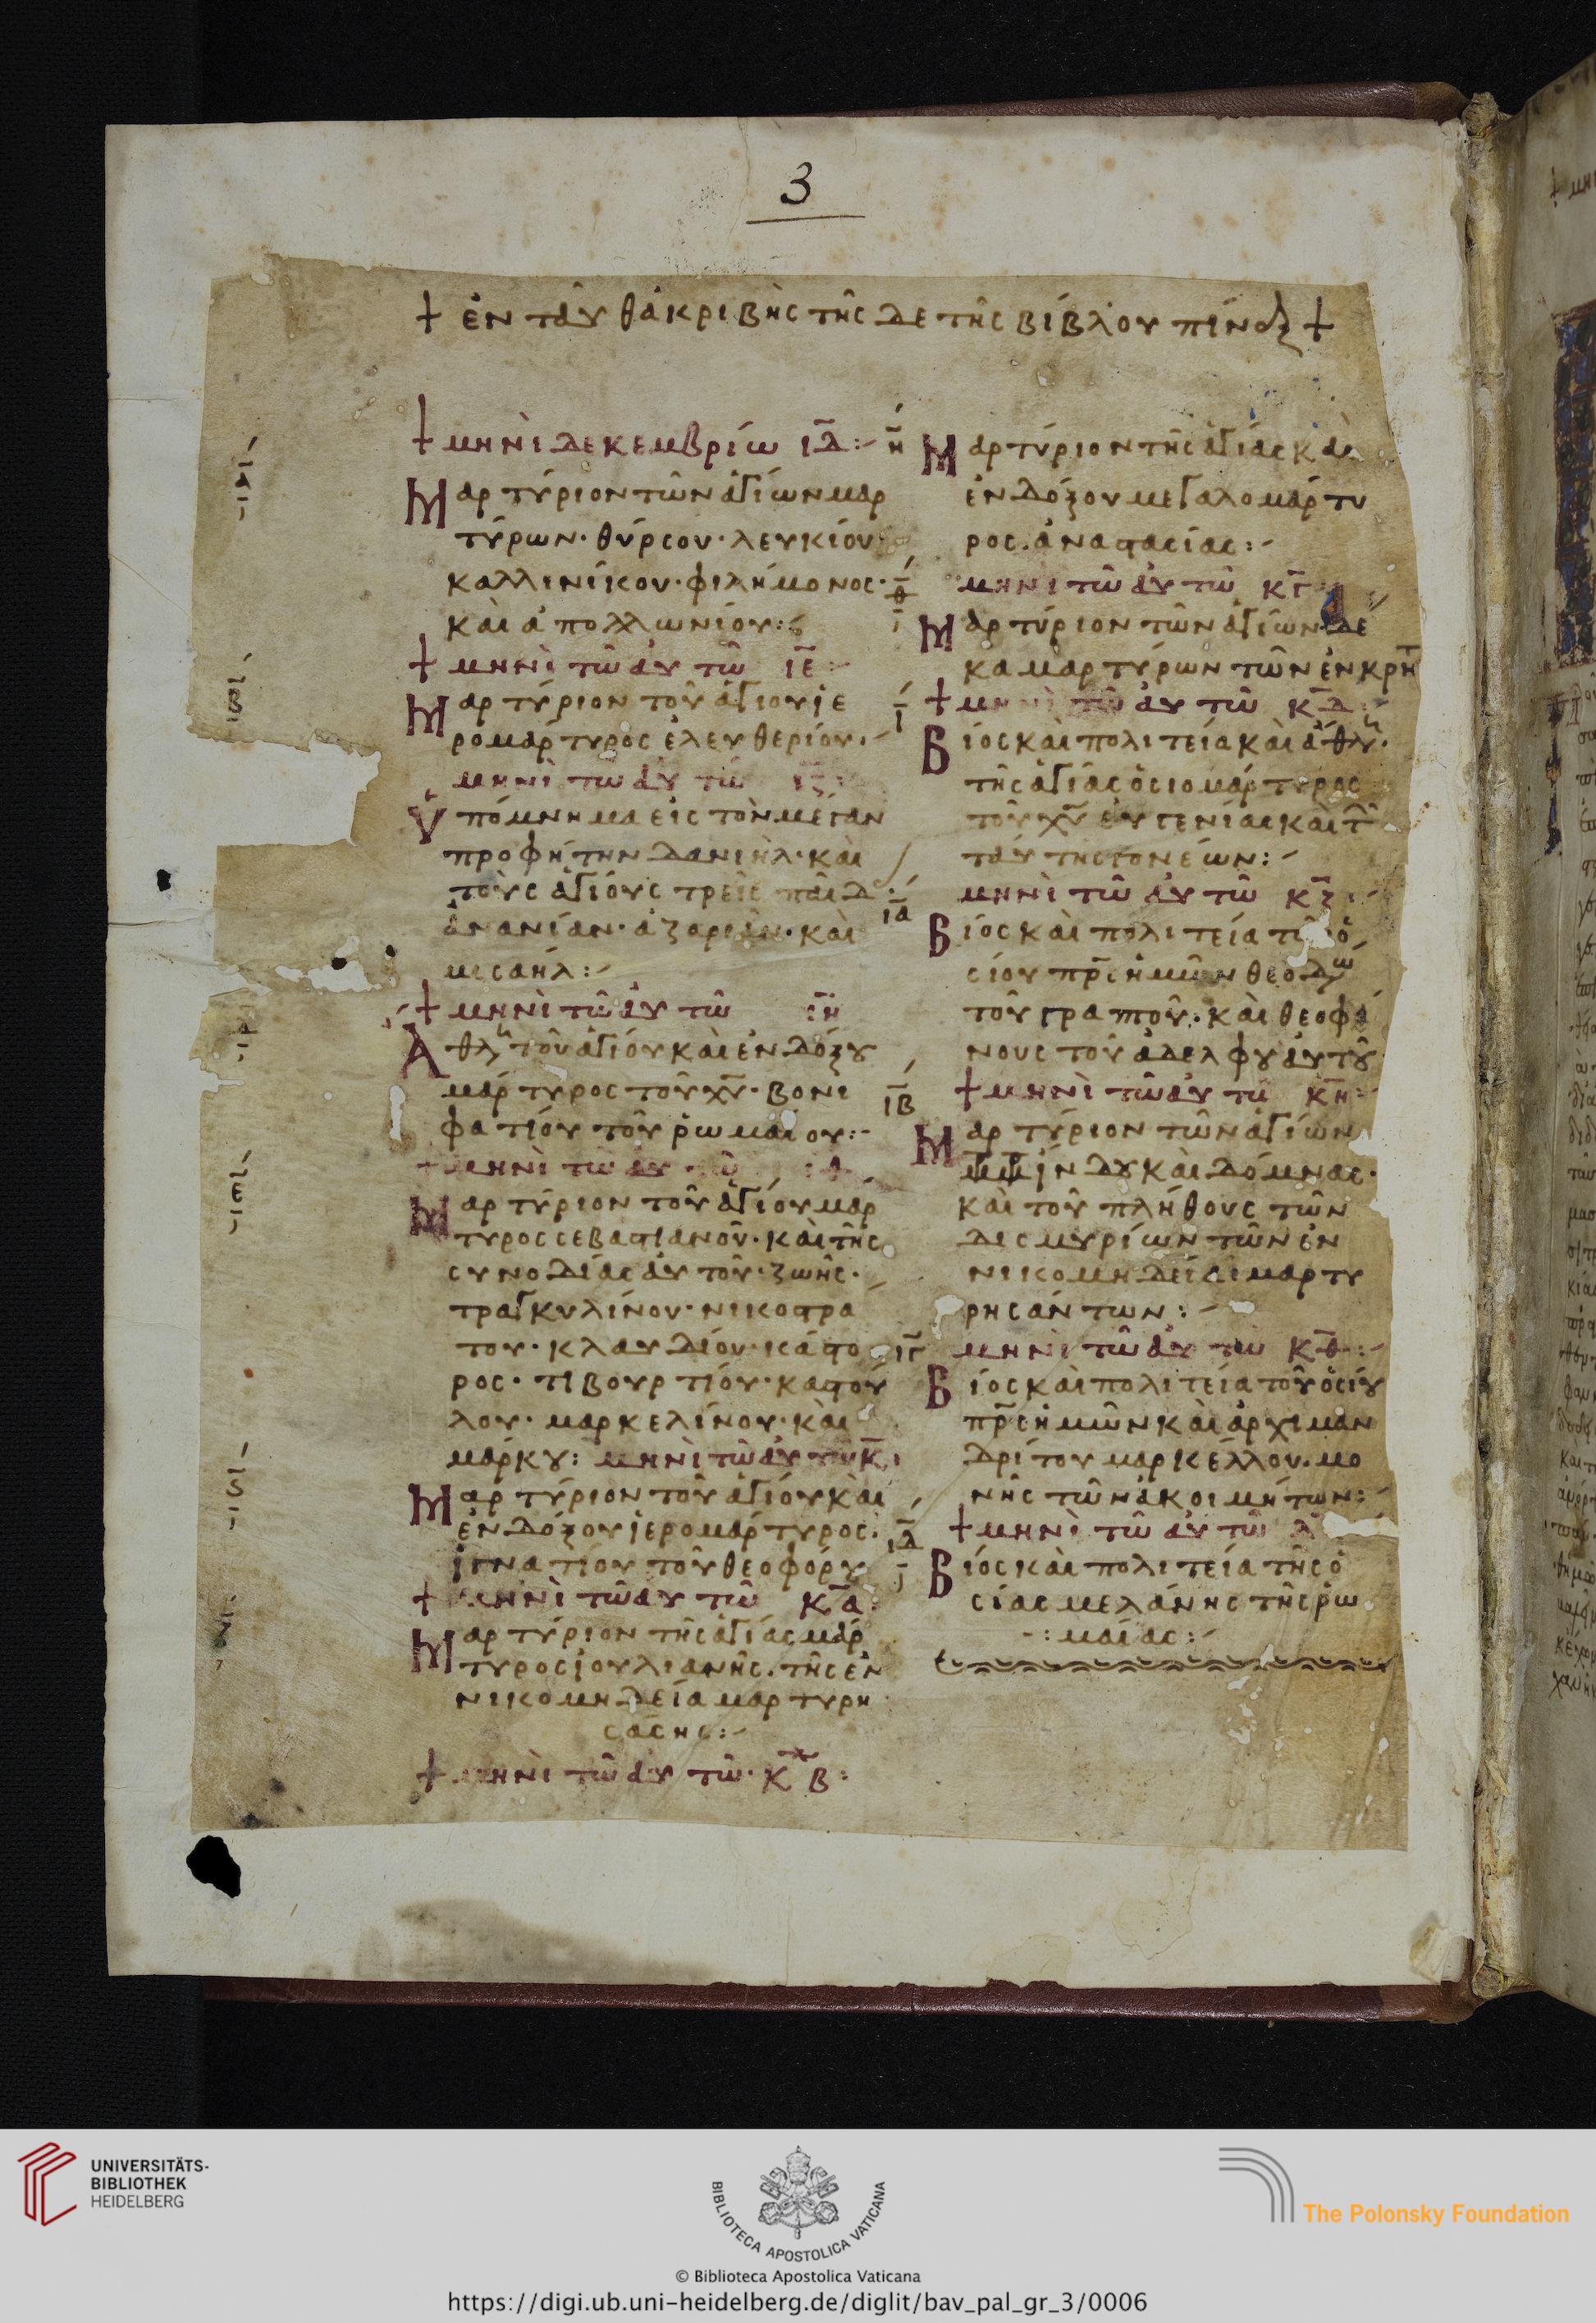 3
+ ἐν ταῦθ ἀκριβὴς τῆς δε τῆς βίβλου πίναξ +
+ μηνὶ δεκεμβρίω ιδ:
α
Μαρτύριον τῶν ἁγίων μαρ
τύρων· θύρσου· λευκίου
καλλινίκου· φιλήμονος·
καὶ ἀπολλωνίου:
+ μηνὶ τῶ αὐτῶ ιε
β
Μαρτύριον τοῦ ἁγίου ἱε
ρομάρτυρος ἐλευθερίου·
μηνὶ τῶ αὐτῶ ιζ
Ὑπόμνημα εἰς τὸν μέγαν
προφήτην δανιὴλ· καὶ
τοὺς ἁγίους τρεῖς παῖδ
ἀνανίαν· ἀζαρίαν· καὶ
μισαήλ:
+ μηνὶ τῶ αὐτῶ ιη
Ἄθλη τοῦ ἁγίου καὶ ἐνδόξου
μάρτυρος τοῦ χυ· βονι
φατίου τοῦ ῥωμαίου:
+ μηνὶ τῶ αὐ
ε
Μαρτύριον τοῦ ἁγίου μάρ
τυρος σεβαστιανοῦ· καὶ τῆς
συνοδίας αὐτοῦ· ζωῆς·
τραγκυλίνου· νικοστρα
του· κλαυδίου· κάστο
ρος· τιβουρτίου· καστού
λου· μαρκελίνου· καὶ
μάρκου: μηνὶ τῶ αὐτῶ κ
ς
Μαρτύριον τοῦ ἁγίου καὶ
ἐνδόξου ἱερομάρτυρος·
ἰγνατίου τοῦ θεοφόρου
+ μηνὶ τῶ αὐτῶ κα
Μαρτύριον τῆς ἁγίας μάρ
τυρος ἰουλιανῆς· τῆς ἐν
νικομηδεία μαρτυρη
σάσης:
+ μηνὶ τῶ αὐτῶ· κβ:
η
Μαρτύριον τῆς ἁγίας καὶ
ἐνδόξου μεγαλομάρτυ
ρος· ἀναστασίας:
μηνὶ τῶ αὐτῶ κγ
θ
Μαρτύριον τῶν ἁγίων δε
κα μαρτύρων τῶν ἐν κρη
+ μηνὶ τῶ αὐτῶ κδ
ι
Βίος καὶ πολιτεία καὶ ἄθλη·
τῆς ἁγίας ὁσιομάρτυρος
τοῦ χυ εὐγενίας καὶ τ
ταύτης γονέων:
μηνὶ τῶ αὐτῶ κζ
ια
Βίος καὶ πολιτεία τοῦ ὁ
σίου πρς ἡμῶν θεοδω
τοῦ γραπτοῦ· καὶ θεοφά
νους τοῦ ἀδελφοῦ αὐτοῦ
+ μηνὶ τῶ αὐτῶ κη
ιβ
Μαρτύριον τῶν ἁγίων
μμ ἴνδου καὶ δόμνας·
καὶ τοῦ πλήθους τῶν
δισμυρίων τῶν ἐν
νικομηδεία μαρτυ
ρησάντων:
ιγ
μηνὶ τῶ αὐτῶ κθ:
Βίος καὶ πολιτεία τοῦ ὁσίου
πρς ἡμῶν καὶ ἀρχιμαν
δρίτου μαρκέλλου· μο
νῆς τῶν ἀκοιμήτων:
+ μηνὶ τῶ αὐτῶ λ
ιδ
Βίος καὶ πολιτεία τῆς ὁ
σίας μελάνης τῆς ῥω
μαίας:
UNIVERSITÄTS-
BIBLIOTHEK
HEIDELBERG
BIBLIOTECA APOSTOLICA VATICANA
The Polonsky Foundation
© Biblioteca Apostolica Vaticana
https://digi.ub.uni-heidelberg.de/diglit/bav_pal_gr_3/0006